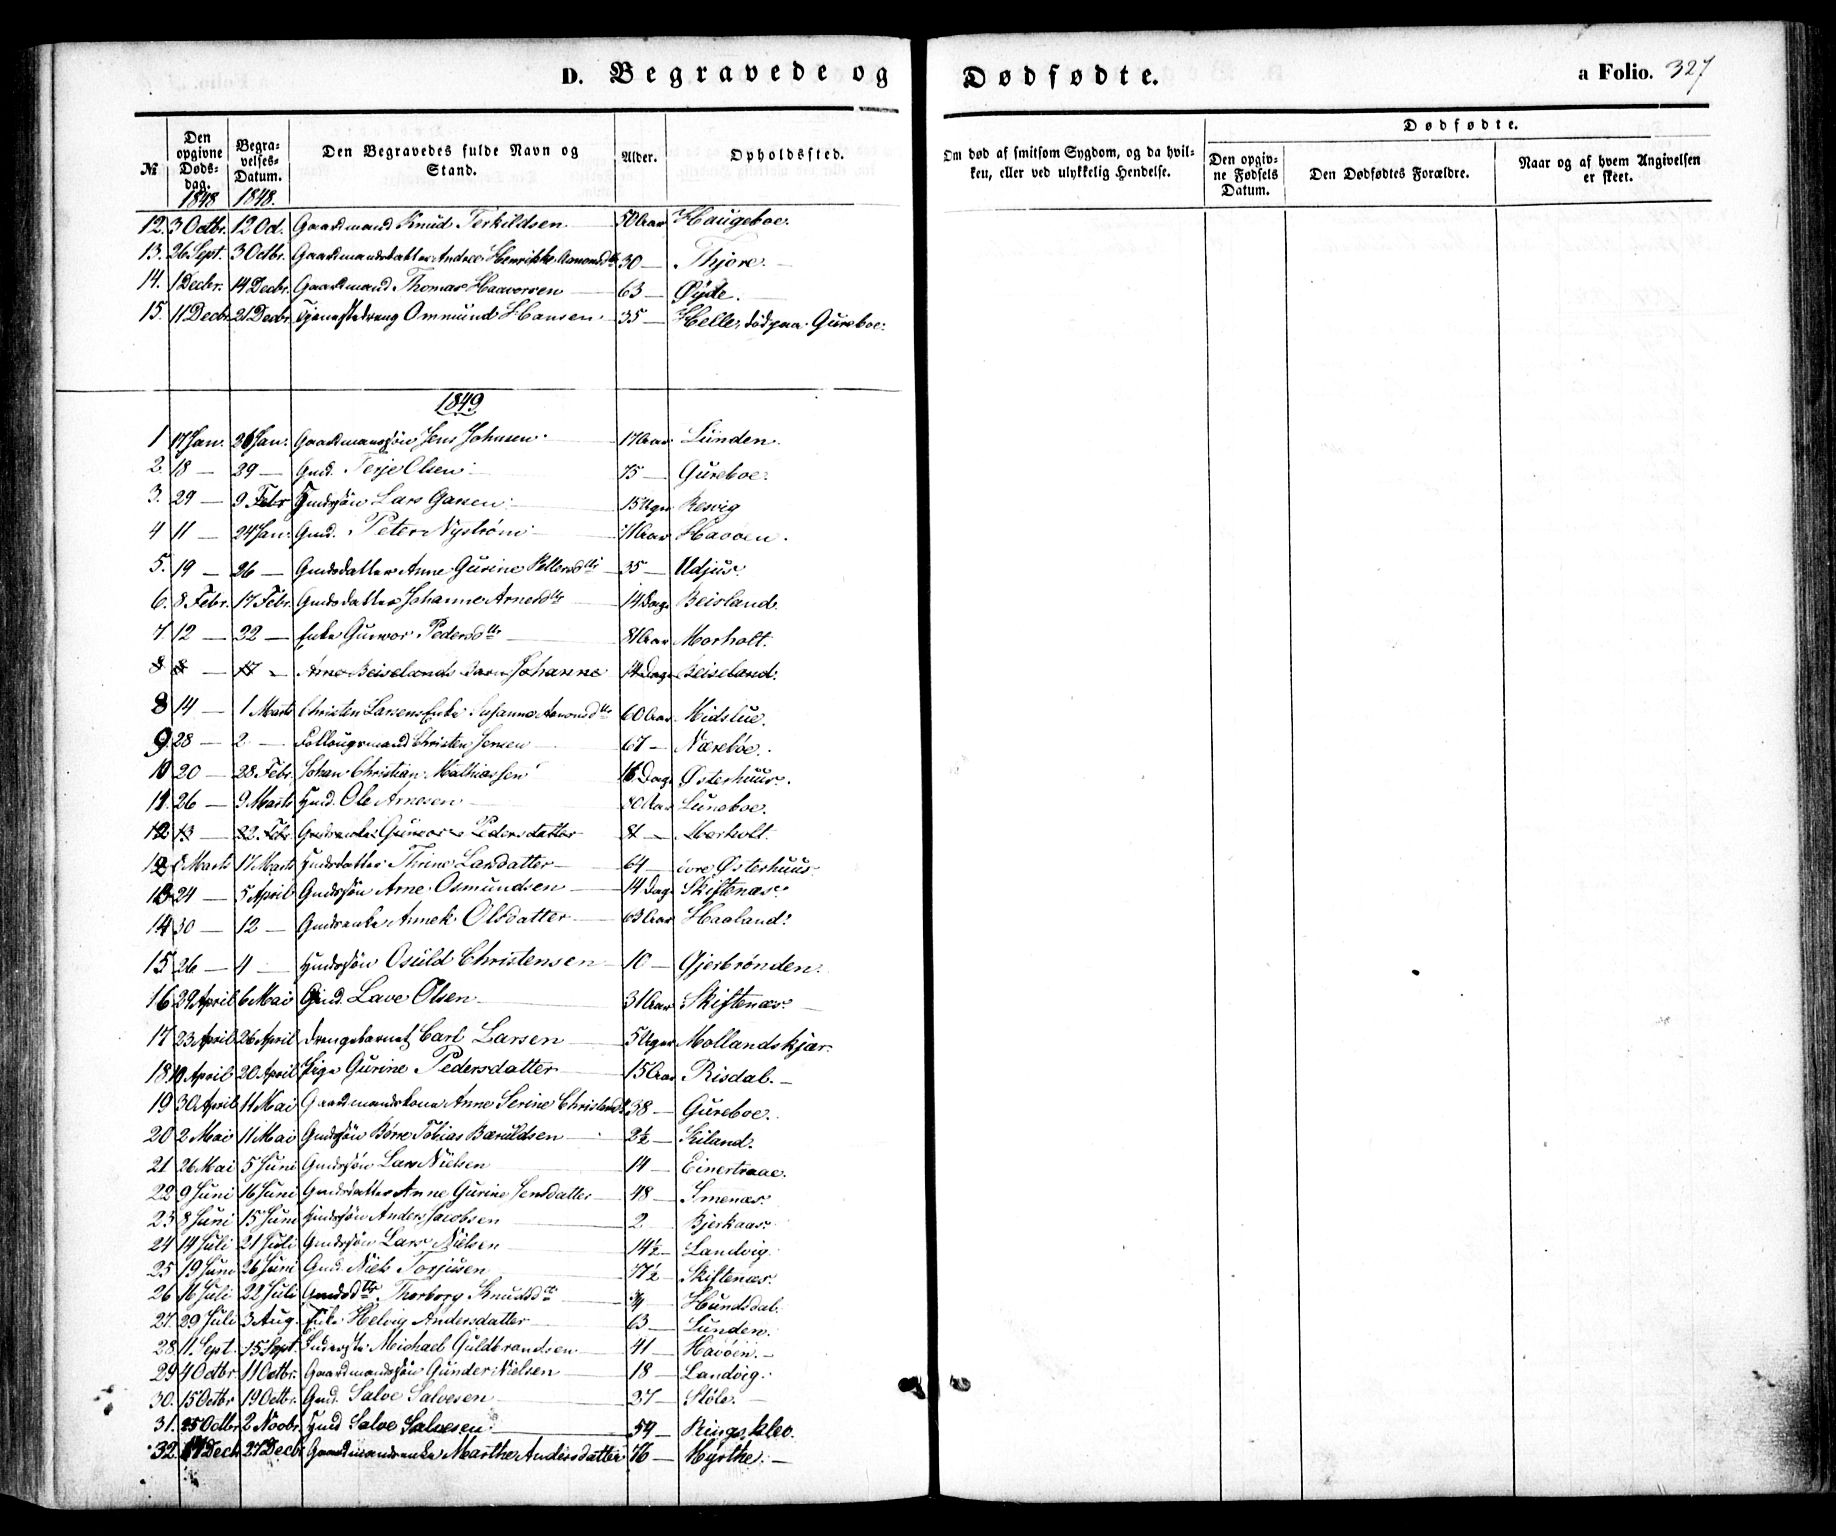 D. Begravede og Dødfødte. a Folio. 327
№ Den opgivne Døds-dag. Begra-velses-Datum. Den Begravedes fulde Navn og Stand. Alder. Opholdsfted. Om død af smitsom Sygdom, og da hvil-ken, eller ved ulykkelig Hendelse. Dødfødte. Den opgiv-ne Fødsels Datum. Den Dødfødtes Forældre. Naar og af hvem Angivelsen er skeet.
1848 1848.
12. 3 Octbr. 12 Oct. Gaardmand Knud Terkildsen 50 Aar Haugeboe.
13. 26 Sept. 3 Octbr. Gaardmandsdatter Andrea Henrikke Amonsdtr 30 — Thjore. —
14. 1 Decbr. 14 Decbr. Gaardmand Thomas Haavorsen — 63 — Øyde.
15. 11 Decbr. 21 Decbr. Tjenestedreng Ommund Hansen. 35 — Helle, død paa Gureboe.
1849
1 17 Jan. 26 Jan. Gaardmanssøn Jens Johnsen. 17 Aar Lunden.
2. 18 — 29 — Gmd. Terje Olsen 75 — Gureboe.
3. 29 — 9 Febr Hmdssøn Lars 15 Uger Resvig
4 11 — 24 Jan. Gmd. Peter Nystrøm 71 Aar Havøen.
5. 19 — 26 — Gmdsdatter Anne Gurine Pettersdtr 35 — Udjus.
6. 8 Febr. 17 Febr. Gmdsdatter Johanne Arnesdtr 14 Dage Beisland.
7. 12 — 22 — Enke Gunvor Pedersdtr 81 Aar Morholt.
8 8 — 17 — Arne Beiselands Barn Johanne 14 Dage Beiseland.
8 14 — 1 Marts Christen Larsens Enke Susanne Aanonsdtr 60 Aar. Midslue.
9. 28 — 2 — Follougsmand Christen Jensen — 67 — Nærebøe.
10 20 — 28 Febr. Johan Christian Mathiassen 16 Dage Østerhuus.
11. 26 — 9 Marts Hmd. Ole Arnesen 80 Aar Luneboe.
12 13 — 22. Febr. Gmdsenke Gunvor Pedersdatter 81 — Morholt.
12 8 Marts 17 Marts Hmdsdatter Thrine Larsdatter — 64 — øvre Østerhuus
13 24 — 5 April Gmdssøn Arne Osmundsen — 14 Dag Skiftenæs.
14 30 — 12 — Gmdsenke Annek. Olsdatter 63 Aar Haaland.
15 26 — 4 — Hmdssøn Osuld Christensen — 10 — Gjerbrønden.
16. 29 April 6 Mai Gmd. Lave Olsen 31 Aar Skiftenæs.
17 23 April 26 April Drengebarnet Carl Larsen 5 Uger Mollandskjær.
18. 10 April 20 April Pige Gurine Pedersdatter 15 Aar Risdal. —
19 30 April 11 Mai Gaardmandskone Anne Serine Christensdtr 38 — Gureboe.
20 2 Mai 11 Mai Gmdssøn Børre Tobias Baruldsen 2½ — Kiland.
21 26 Mai 5 Juni Gmdssøn Lars Nielsen 14 — Einertraae.
22 9 Juni 16 Juni Gmdsdatter Anne Gurine Jensdatter 48 — Imenæs.
23 8 Juni 15 Juni Hmdssøn Anders Jacobsen 2 — Bjerkaas.
24 14 Juli 21 Juli Gmdssøn Lars Nielsen 14½ — Landvig.
25 19 Juni 26 Juni Gmd. Niels Torjussen 77½ Skiftenæs.
26 16 Juli 22 Juli Gmdsdtr. Thorborg Knudsdtr ¾ — Hundsdal.
27. 29 Juli 3 Aug. Enke Helvig Andersdatter 63 — Lunden.
28 11. Sept. 15 Sept. Inderste Michael Guldbrandsen 41 — Havøen. —
29 4 Octbr. 11 Octbr. Gaardmandssøn Gunder Nielsen 18 — Landvig.
30. 15 Octbr 19 Octbr. Gmd. Salve Salvesen 37 — Støle.
31. 25 Octbr 2 Novbr. Hmd Salve Salvesen 54 — Ringskleo.
32. 17 Dech 27 Decbr Gaardmandsenke Marthe Andersdatter 76 — Hyrthe. —